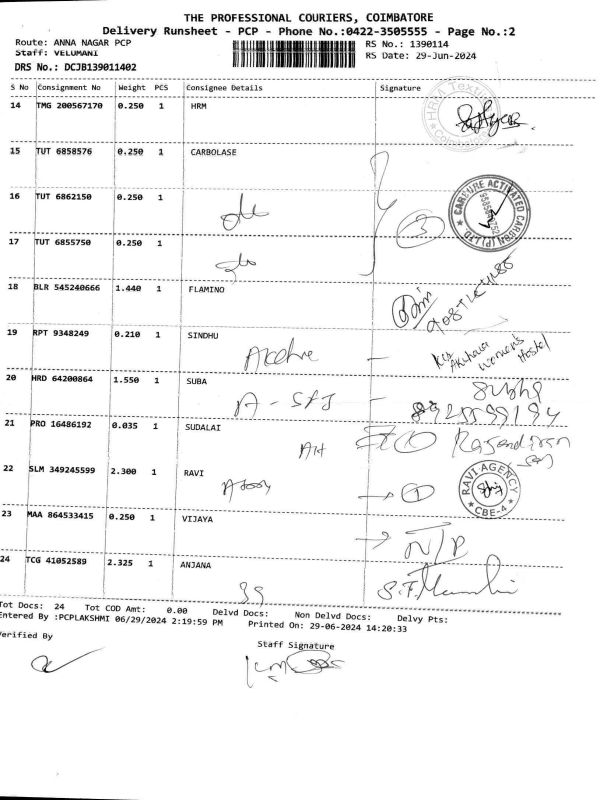 THE PROFESSIONAL COURIERS, COIMBATORE
Delivery Runsheet - PCP - Phone No.:0422-3505555 - Page No.:2
Route: ANNA NAGAR PCP
Staff: VELUMANI
RS No.: 1390114
RS Date: 29-Jun-2024
DRS No.: DCJB139011402
S No Consignment No Weight PCS Consignee Details Signature
14 TMG 200567170 0.250 1 HRM
15 TUT 6858576 0.250 1 CARBOLASE
16 TUT 6862150 0.250 1
3
CARBURE ACTIVATED CARBON (P) LTD.
17 TUT 6855750 0.250 1
18 BLR 545240666 1.440 1 FLAMINO
19 RPT 9348249 0.210 1 SINDHU
Women's
Hostel
20 HRD 64200864 1.550 1 SUBA
21 PRO 16486192 0.035 1 SUDALAI
22 SLM 349245599 2.300 1 RAVI
1
RAVI AGENCY
CBE-4
23 MAA 864533415 0.250 1 VIJAYA
N/P
24 TCG 41052589 2.325 1 ANJANA
39
Tot Docs: 24 Tot COD Amt: 0.00 Delvd Docs: Non Delvd Docs: Delvy Pts:
Entered By :PCPLAKSHMI 06/29/2024 2:19:59 PM Printed On: 29-06-2024 14:20:33
Verified By
Staff Signature